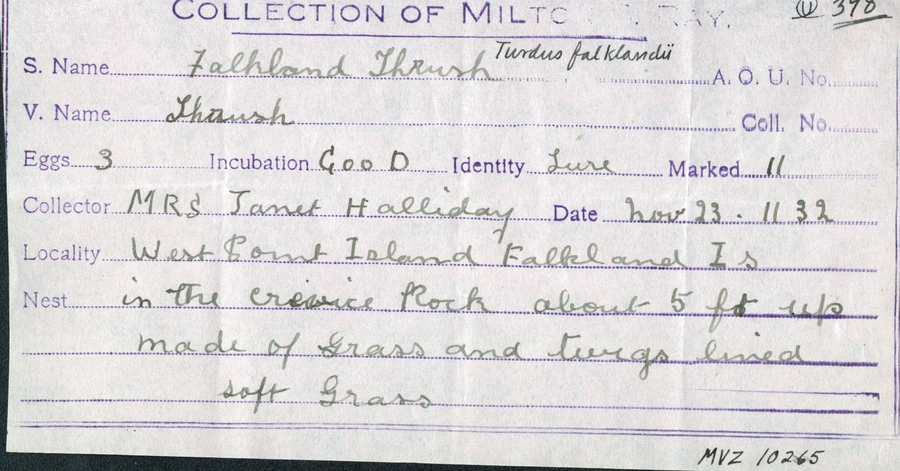 COLLECTION OF MILTO RAY. 390
Turdus falklandii
S. Name Falkland Thrush A. O. U. No.
V. Name Thrush Coll. No.
Eggs 3 Incubation GooD Identity Sure Marked 11
Collector MRS Janet Halliday Date Nov 23. 11 32
Locality West Point Island Falkland Is
Nest in the crevice Rock about 5 ft up
made of Grass and twigs lined
soft Grass
MVZ 10265